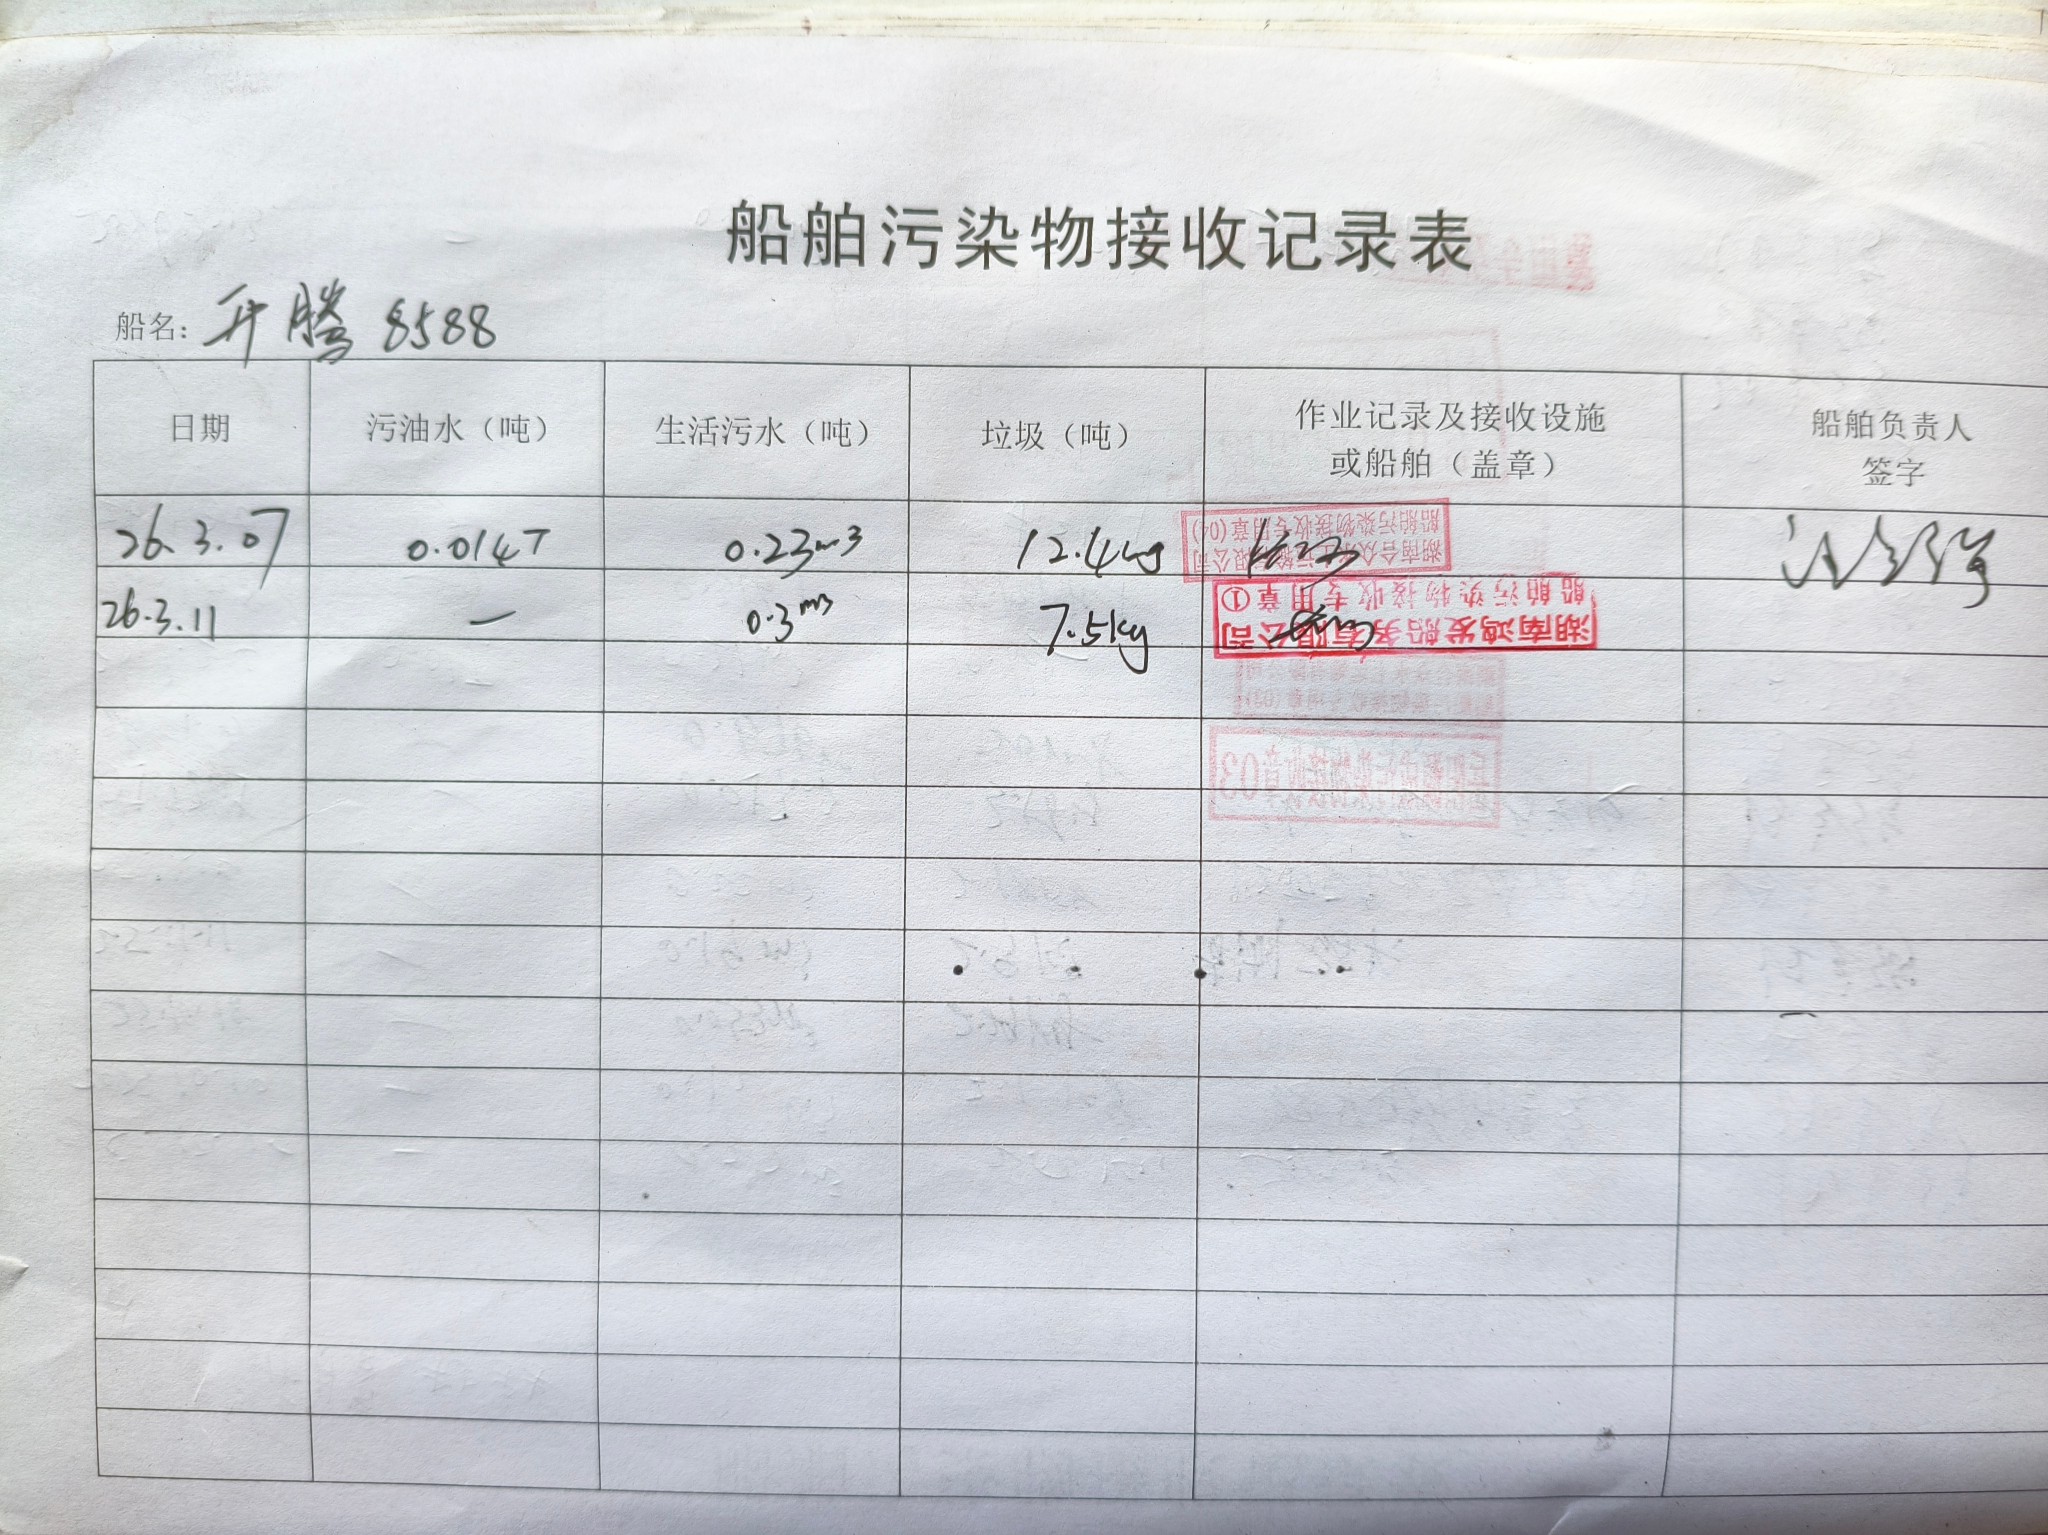 船舶污染物接收记录表
船名: 升腾 8588
日期 污油水（吨） 生活污水（吨） 垃圾（吨） 作业记录及接收设施或船舶（盖章） 船舶负责人签字
26.3.07 0.014T 0.23m3 12.4kg
船舶污染物接收专用章(04)
26.3.11 — 0.3m3 7.5kg
湖南鸿发船务有限公司
船舶污染物接收专用章①